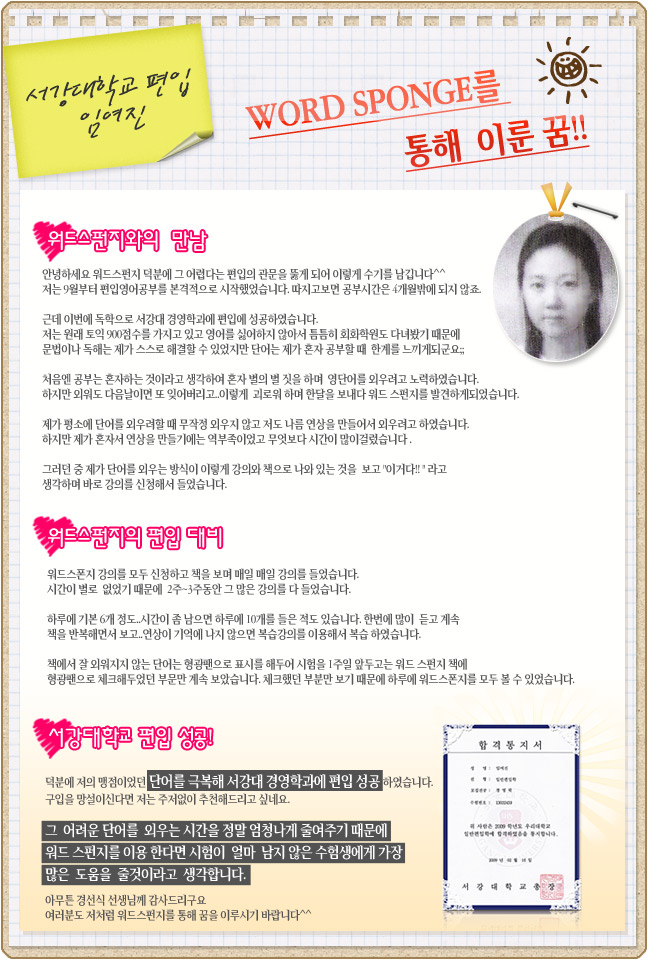 서강대학교 편입
임여진
WORD SPONGE를
통해 이룬 꿈!!
워드스펀지와의 만남
안녕하세요 워드스펀지 덕분에 그 어렵다는 편입의 관문을 뚫게 되어 이렇게 수기를 남깁니다^^
저는 9월부터 편입영어공부를 본격적으로 시작했었습니다. 따지고보면 공부시간은 4개월밖에 되지 않죠.
근데 이번에 독학으로 서강대 경영학과에 편입에 성공하였습니다.
저는 원래 토익 900점수를 가지고 있고 영어를 싫어하지 않아서 틈틈히 회화학원도 다녀봤기 때문에
문법이나 독해는 제가 스스로 해결할 수 있었지만 단어는 제가 혼자 공부할 때 한계를 느끼게되군요;;
처음엔 공부는 혼자하는 것이라고 생각하여 혼자 별의 별 짓을 하며 영단어를 외우려고 노력하였습니다.
하지만 외워도 다음날이면 또 잊어버리고..이렇게 괴로워 하며 한달을 보내다 워드 스펀지를 발견하게되었습니다.
제가 평소에 단어를 외우려할 때 무작정 외우지 않고 저도 나름 연상을 만들어서 외우려고 하였습니다.
하지만 제가 혼자서 연상을 만들기에는 역부족이었고 무엇보다 시간이 많이걸렸습니다 .
그러던 중 제가 단어를 외우는 방식이 이렇게 강의와 책으로 나와 있는 것을 보고 "이거다!! " 라고
생각하며 바로 강의를 신청해서 들었습니다.
워드스펀지의 편입 대비
워드스폰지 강의를 모두 신청하고 책을 보며 매일 매일 강의를 들었습니다.
시간이 별로 없었기 때문에 2주~3주동안 그 많은 강의를 다 들었습니다.
하루에 기본 6개 정도..시간이 좀 남으면 하루에 10개를 들은 적도 있습니다. 한번에 많이 듣고 계속
책을 반복해면서 보고..연상이 기억에 나지 않으면 복습강의를 이용해서 복습 하였습니다.
책에서 잘 외워지지 않는 단어는 형광팬으로 표시를 해두어 시험을 1주일 앞두고는 워드 스펀지 책에
형광팬으로 체크해두었던 부문만 계속 보았습니다. 체크했던 부분만 보기 때문에 하루에 워드스폰지를 모두 볼 수 있었습니다.
서강대학교 편입 성공!
덕분에 저의 맹점이었던 단어를 극복해 서강대 경영학과에 편입 성공하였습니다.
구입을 망설이신다면 저는 주저없이 추천해드리고 싶네요.
그 어려운 단어를 외우는 시간을 정말 엄청나게 줄여주기 때문에
워드 스펀지를 이용 한다면 시험이 얼마 남지 않은 수험생에게 가장
많은 도움을 줄것이라고 생각합니다.
아무튼 경선식 선생님께 감사드리구요
여러분도 저처럼 워드스펀지를 통해 꿈을 이루시기 바랍니다^^
합격통지서
성 명 : 임여진
전 형 : 일반편입학
모집전공 : 경 영 학
수험번호 :
위 사람은 2009 학년도 우리대학교
일반편입학에 합격하였음을 통지합니다.
서강대학교총장